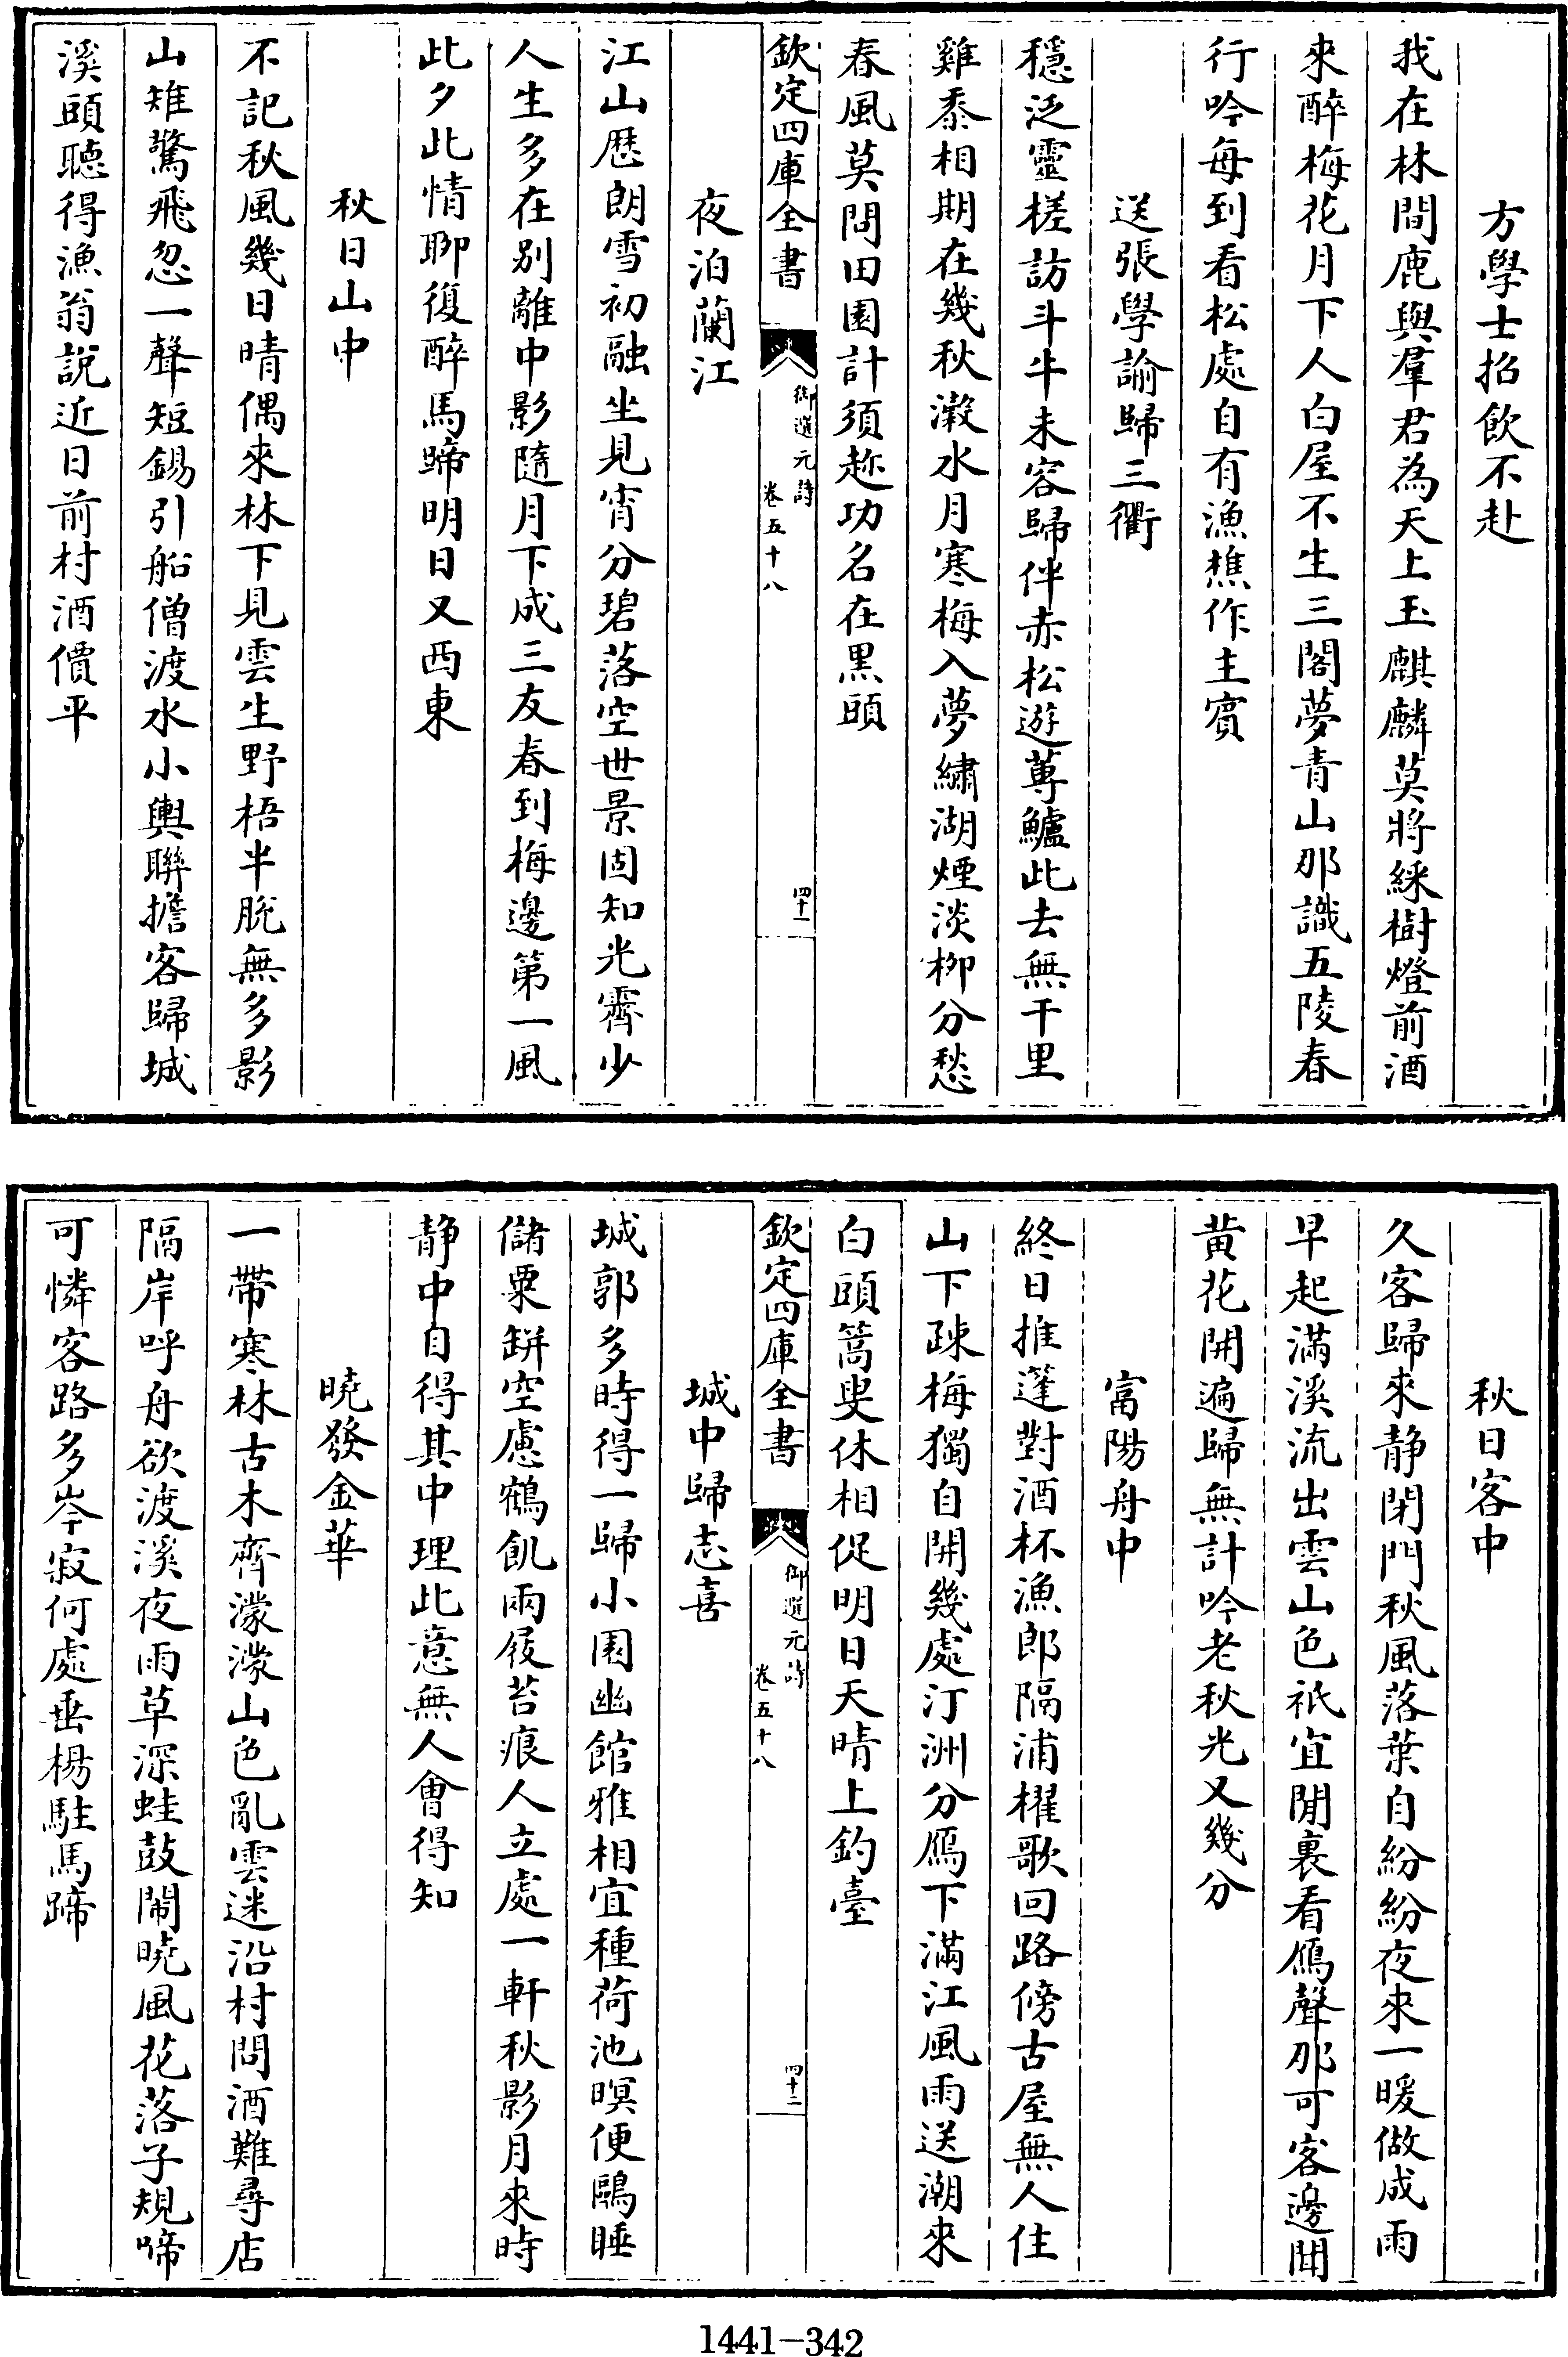 方學士招飲不赴
我在林間鹿與羣君為天上玉麒麟莫將綵樹燈前酒
來醉梅花月下人白屋不生三閣夢青山那識五陵春
行吟每到看松處自有漁樵作主賓
送張學諭歸三衢
穩泛靈槎訪斗牛未容歸伴赤松遊蓴鱸此去無千里
雞黍相期在幾秋瀫水月寒梅入夢繡湖煙淡柳分愁
春風莫問田園計須趂功名在黒頭
欽定四庫全書
御選元詩
卷五十八
四十一
夜泊蘭江
江山歴朗雪初融坐見宵分碧落空世景固知光霽少
人生多在别離中影隨月下成三友春到梅邊第一風
此夕此情聊復醉馬蹄明日又西東
秋日山中
不記秋風幾日晴偶來林下見雲生野梧半脱無多影
山雉驚飛忽一聲短錫引船僧渡水小輿聯擔客歸城
溪頭聴得漁翁説近日前村酒價平
秋日客中
久客歸來静閉門秋風落葉自紛紛夜來一暖做成雨
早起滿溪流出雲山色祇宜閒裏看鴈聲那可客邊聞
黄花開遍歸無計吟老秋光又幾分
富陽舟中
終日推蓬對酒杯漁郎隔浦櫂歌回路傍古屋無人住
山下疎梅獨自開幾處汀洲分鴈下滿江風雨送潮來
白頭篙叟休相促明日天晴上釣臺
欽定四庫全書
御選元詩
卷五十八
四十二
城中歸志喜
城郭多時得一歸小園幽館雅相宜種荷池暝便鷗睡
儲粟缾空慮鶴飢兩屐苔痕人立處一軒秋影月來時
静中自得其中理此意無人會得知
曉發金華
一帶寒林古木齊濛濛山色亂雲迷沿村問酒難尋店
隔岸呼舟欲渡溪夜雨草深蛙鼓鬧曉風花落子規啼
可憐客路多岑寂何處垂楊駐馬蹄
1441-342